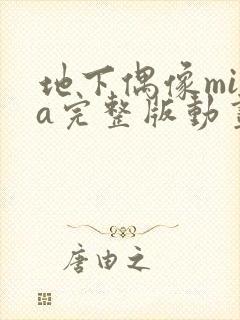 地下偶像mi
a完整版动
唐由之